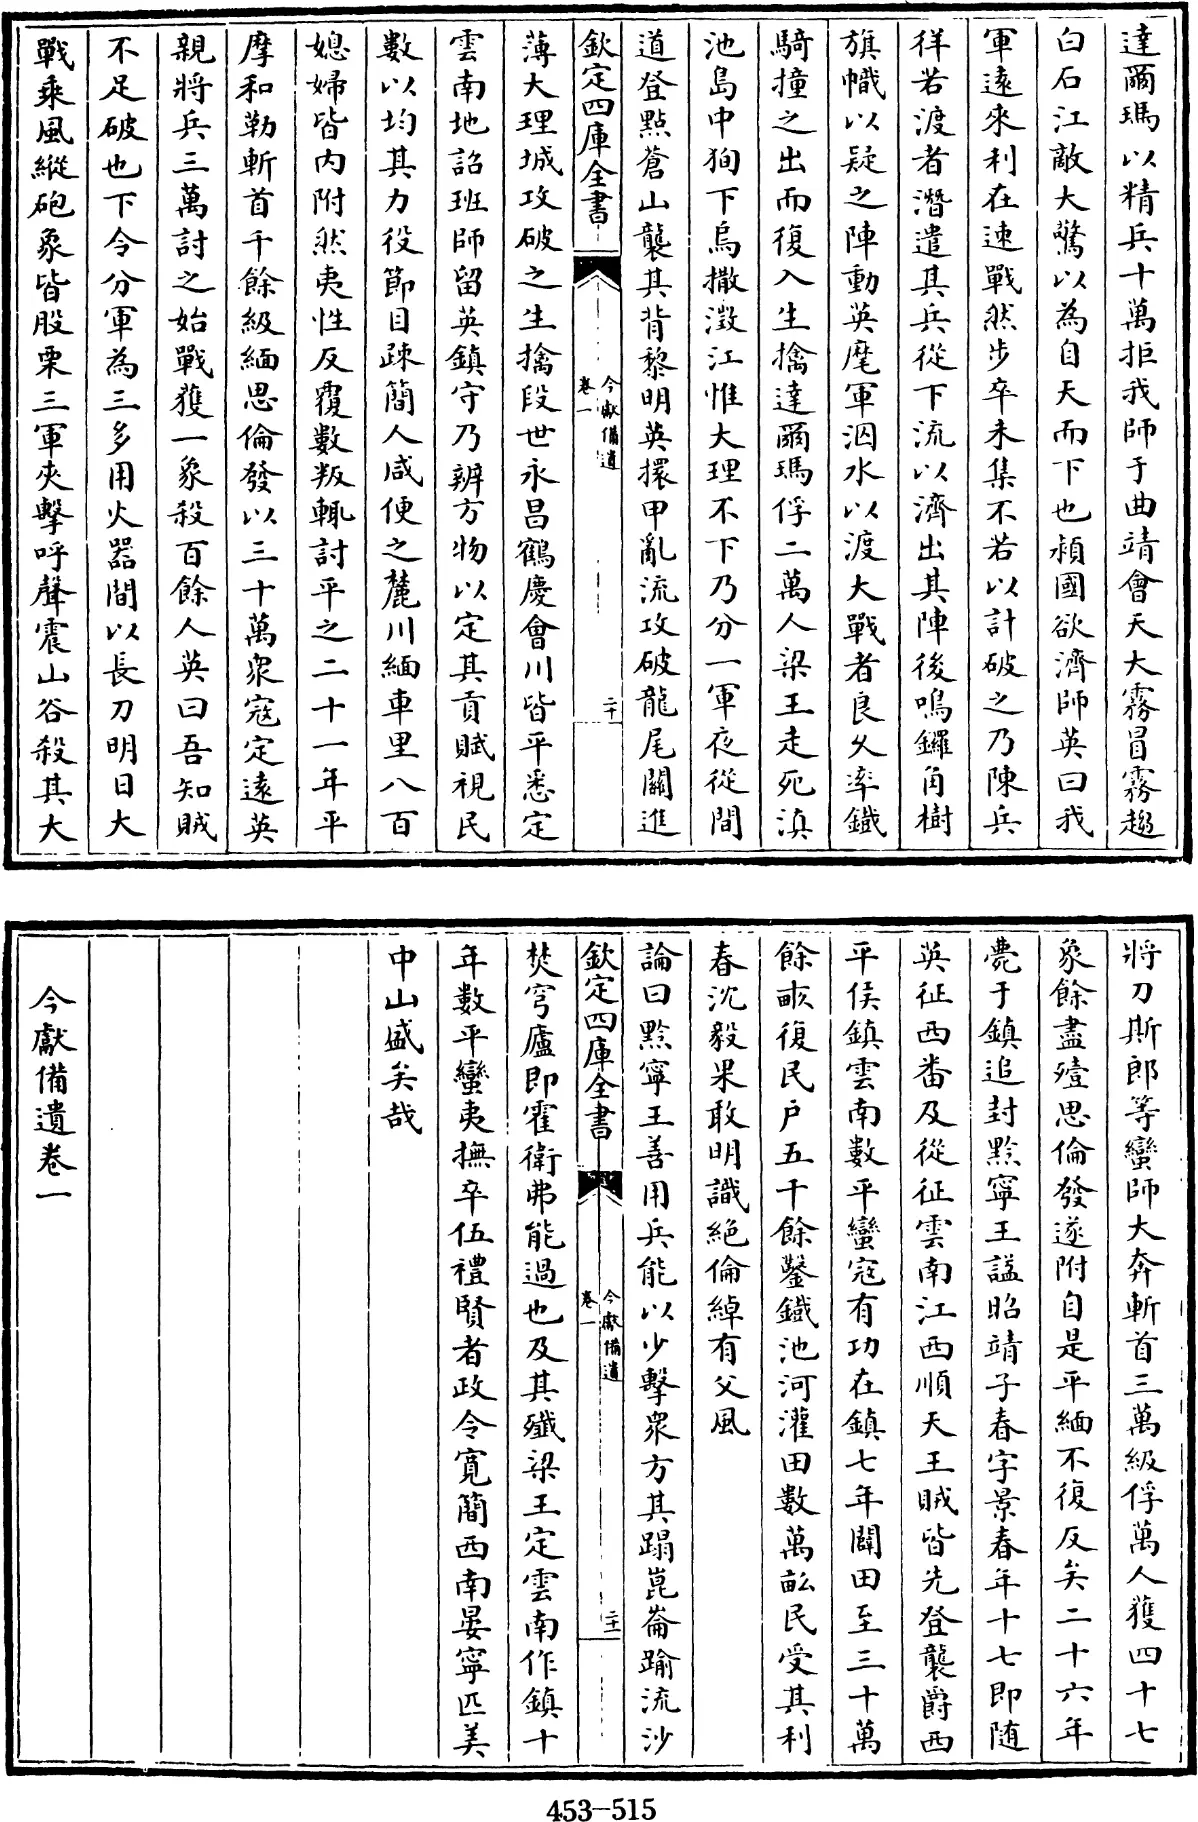 達爾瑪以精兵十萬拒我師于曲靖會天大霧冒霧趨
白石江敵大驚以為自天而下也潁國欲濟師英曰我
軍遠來利在速戰然步卒未集不若以計破之乃陳兵
徉若渡者潛遣其兵從下流以濟出其陣後鳴鑼角樹
旗幟以疑之陣動英麾軍泅水以渡大戰者良久率鐵
騎撞之出而復入生擒達爾瑪俘二萬人梁王走死滇
池島中狥下烏撒澂江惟大理不下乃分一軍夜從間
道登點蒼山襲其背黎明英擐甲亂流攻破龍尾關進
欽定四庫全書
今獻備遺
卷一
二十
薄大理城攻破之生擒段世永昌鶴慶會川皆平悉定
雲南地詔班師留英鎮守乃辨方物以定其貢賦視民
數以均其力役節目疎簡人咸便之麓川緬車里八百
媳婦皆内附然夷性反覆數叛輒討平之二十一年平
摩和勒斬首千餘級緬思倫發以三十萬衆寇定遠英
親將兵三萬討之始戰獲一象殺百餘人英曰吾知賊
不足破也下令分軍為三多用火器間以長刀明日大
戰乘風縱砲象皆股栗三軍夾擊呼聲震山谷殺其大
將刀斯郎等蠻師大奔斬首三萬級俘萬人獲四十七
象餘盡殪思倫發遂附自是平緬不復反矣二十六年
薨于鎮追封黔寧王諡昭靖子春字景春年十七即随
英征西番及從征雲南江西順天王賊皆先登襲爵西
平侯鎮雲南數平蠻寇有功在鎮七年闢田至三十萬
餘畝復民户五千餘鑿鐵池河灌田數萬畝民受其利
春沈毅果敢明識絶倫綽有父風
論曰黔寧王善用兵能以少擊衆方其蹋崑崙踰流沙
欽定四庫全書
今獻備遺
卷一
二十一
焚穹廬即霍衛弗能過也及其殲梁王定雲南作鎮十
年數平蠻夷撫卒伍禮賢者政令寛簡西南晏寧匹美
中山盛矣哉
今獻備遺卷一
453-515